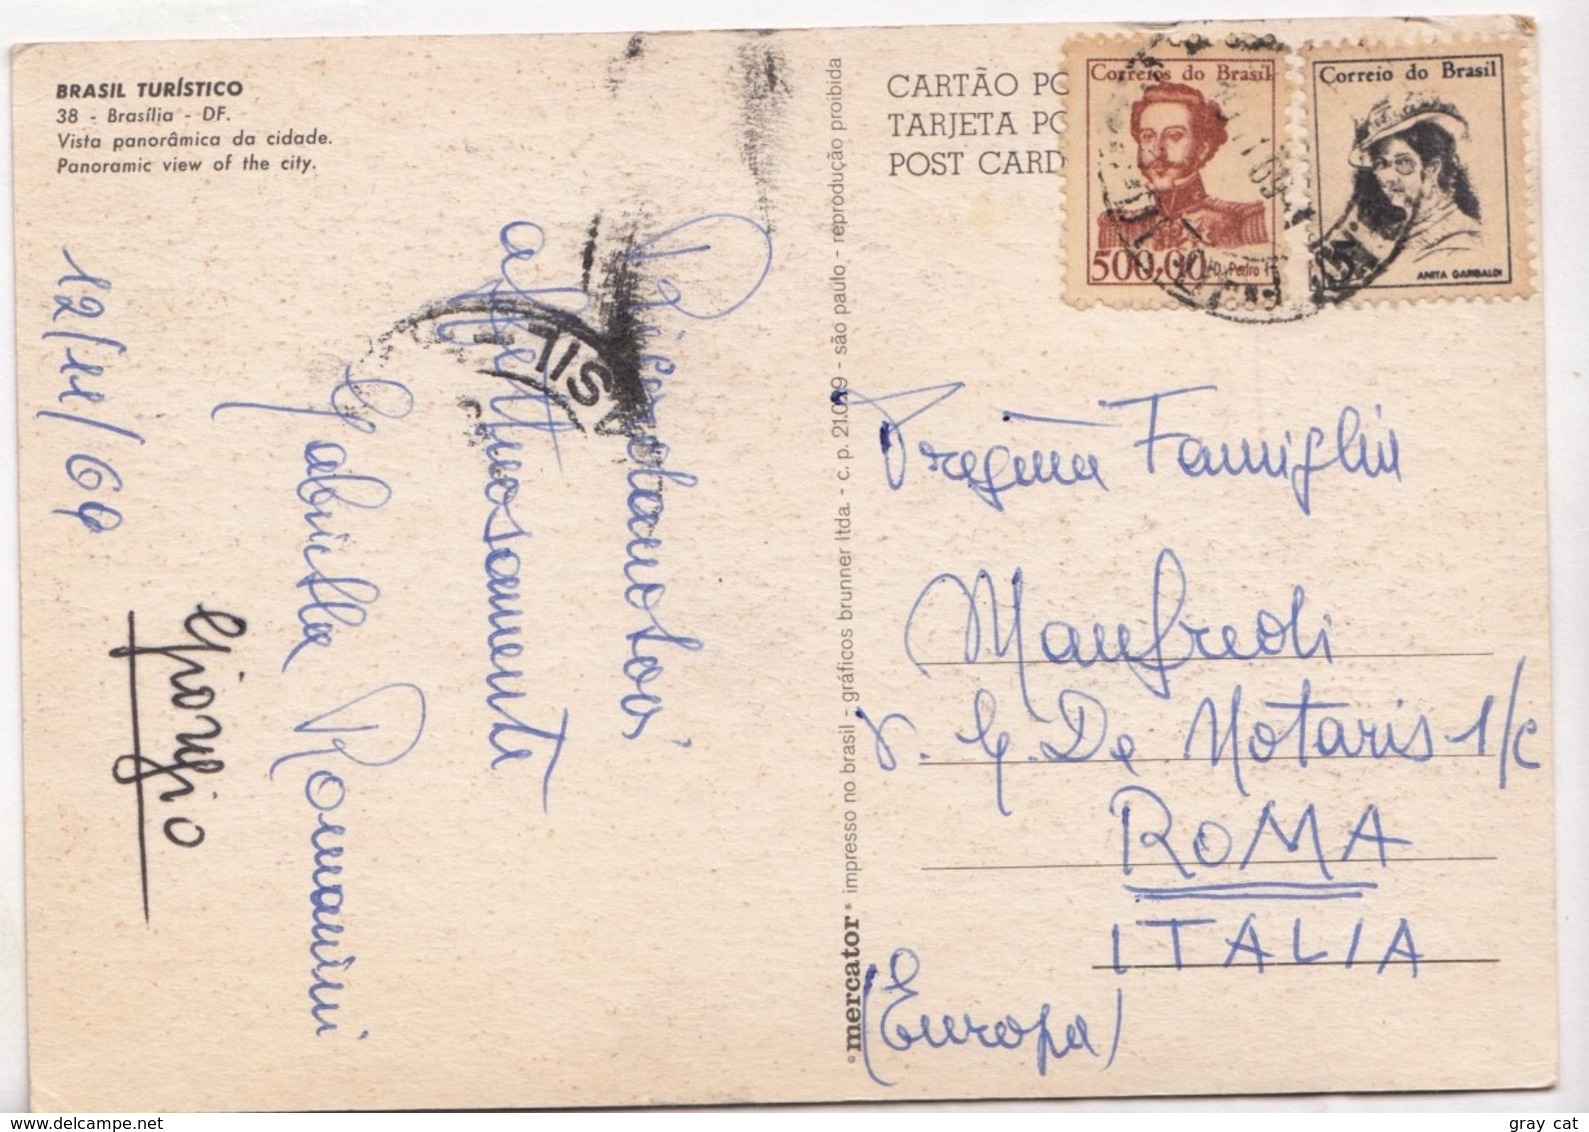 BRASIL TURÍSTICO
38 - Brasília - DF.
Vista panorâmica da cidade.
Panoramic view of the city.
Ricordandovi
affettuosamente
Gabriella Romanini
Giorgio
12/11/69
mercator
impresso no brasil - gráficos brunner ltda. - c. p. 21.099 - são paulo - reprodução proibida
CARTÃO PO
TARJETA PO
POST CARD
Correios do Brasil
500,00
D. Pedro I
Correio do Brasil
ANITA GARIBALDI
Famiglia
Manfredi
V. G. De Notaris 1/c
ROMA
ITALIA
(Europa)
gray cat